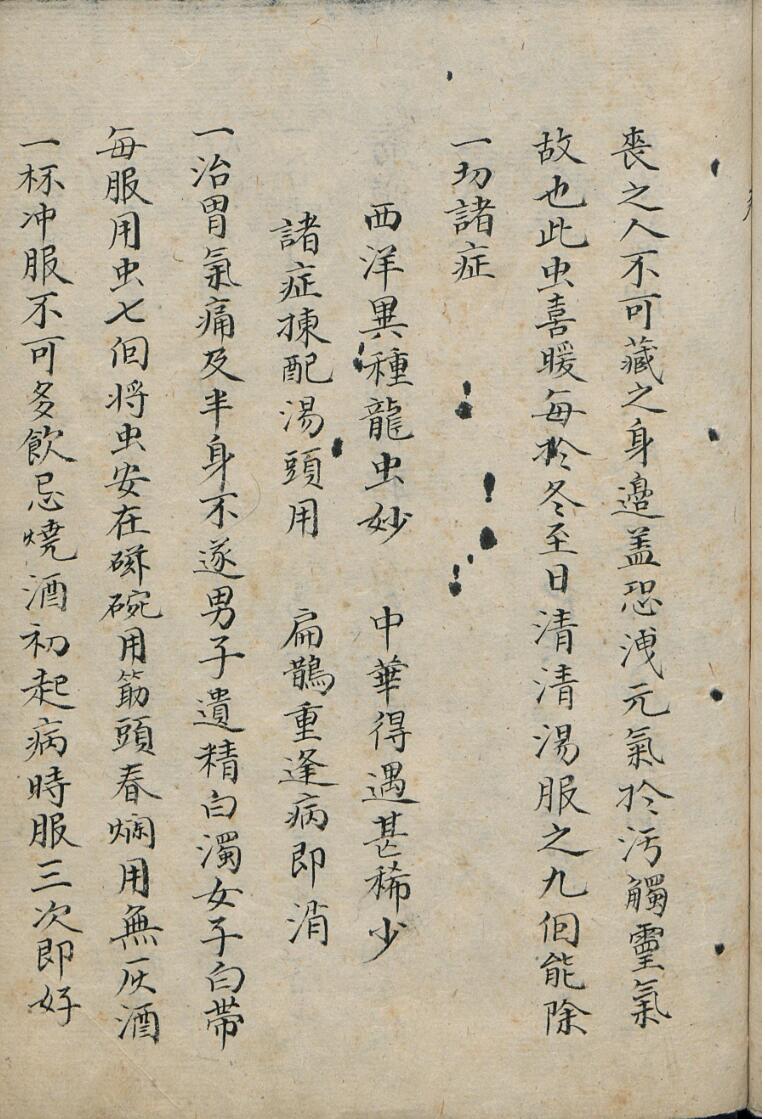 喪之人不可藏之身邉盖恐洩元氣扵汚觸靈氣
故也此虫喜暖每扵冬至日清清湯服之九個能除
一切諸症
西洋異種龍虫妙　中華得遇甚稀少
諸症揀配湯頭用　扁鵲重逢病即消
一治胃氣痛及半身不遂男子遺精白濁女子白帶
每服用虫七個将虫安在磁碗用筯頭舂爛用無灰酒
一杯冲服不可多飲忌燒酒初起病時服三次即好